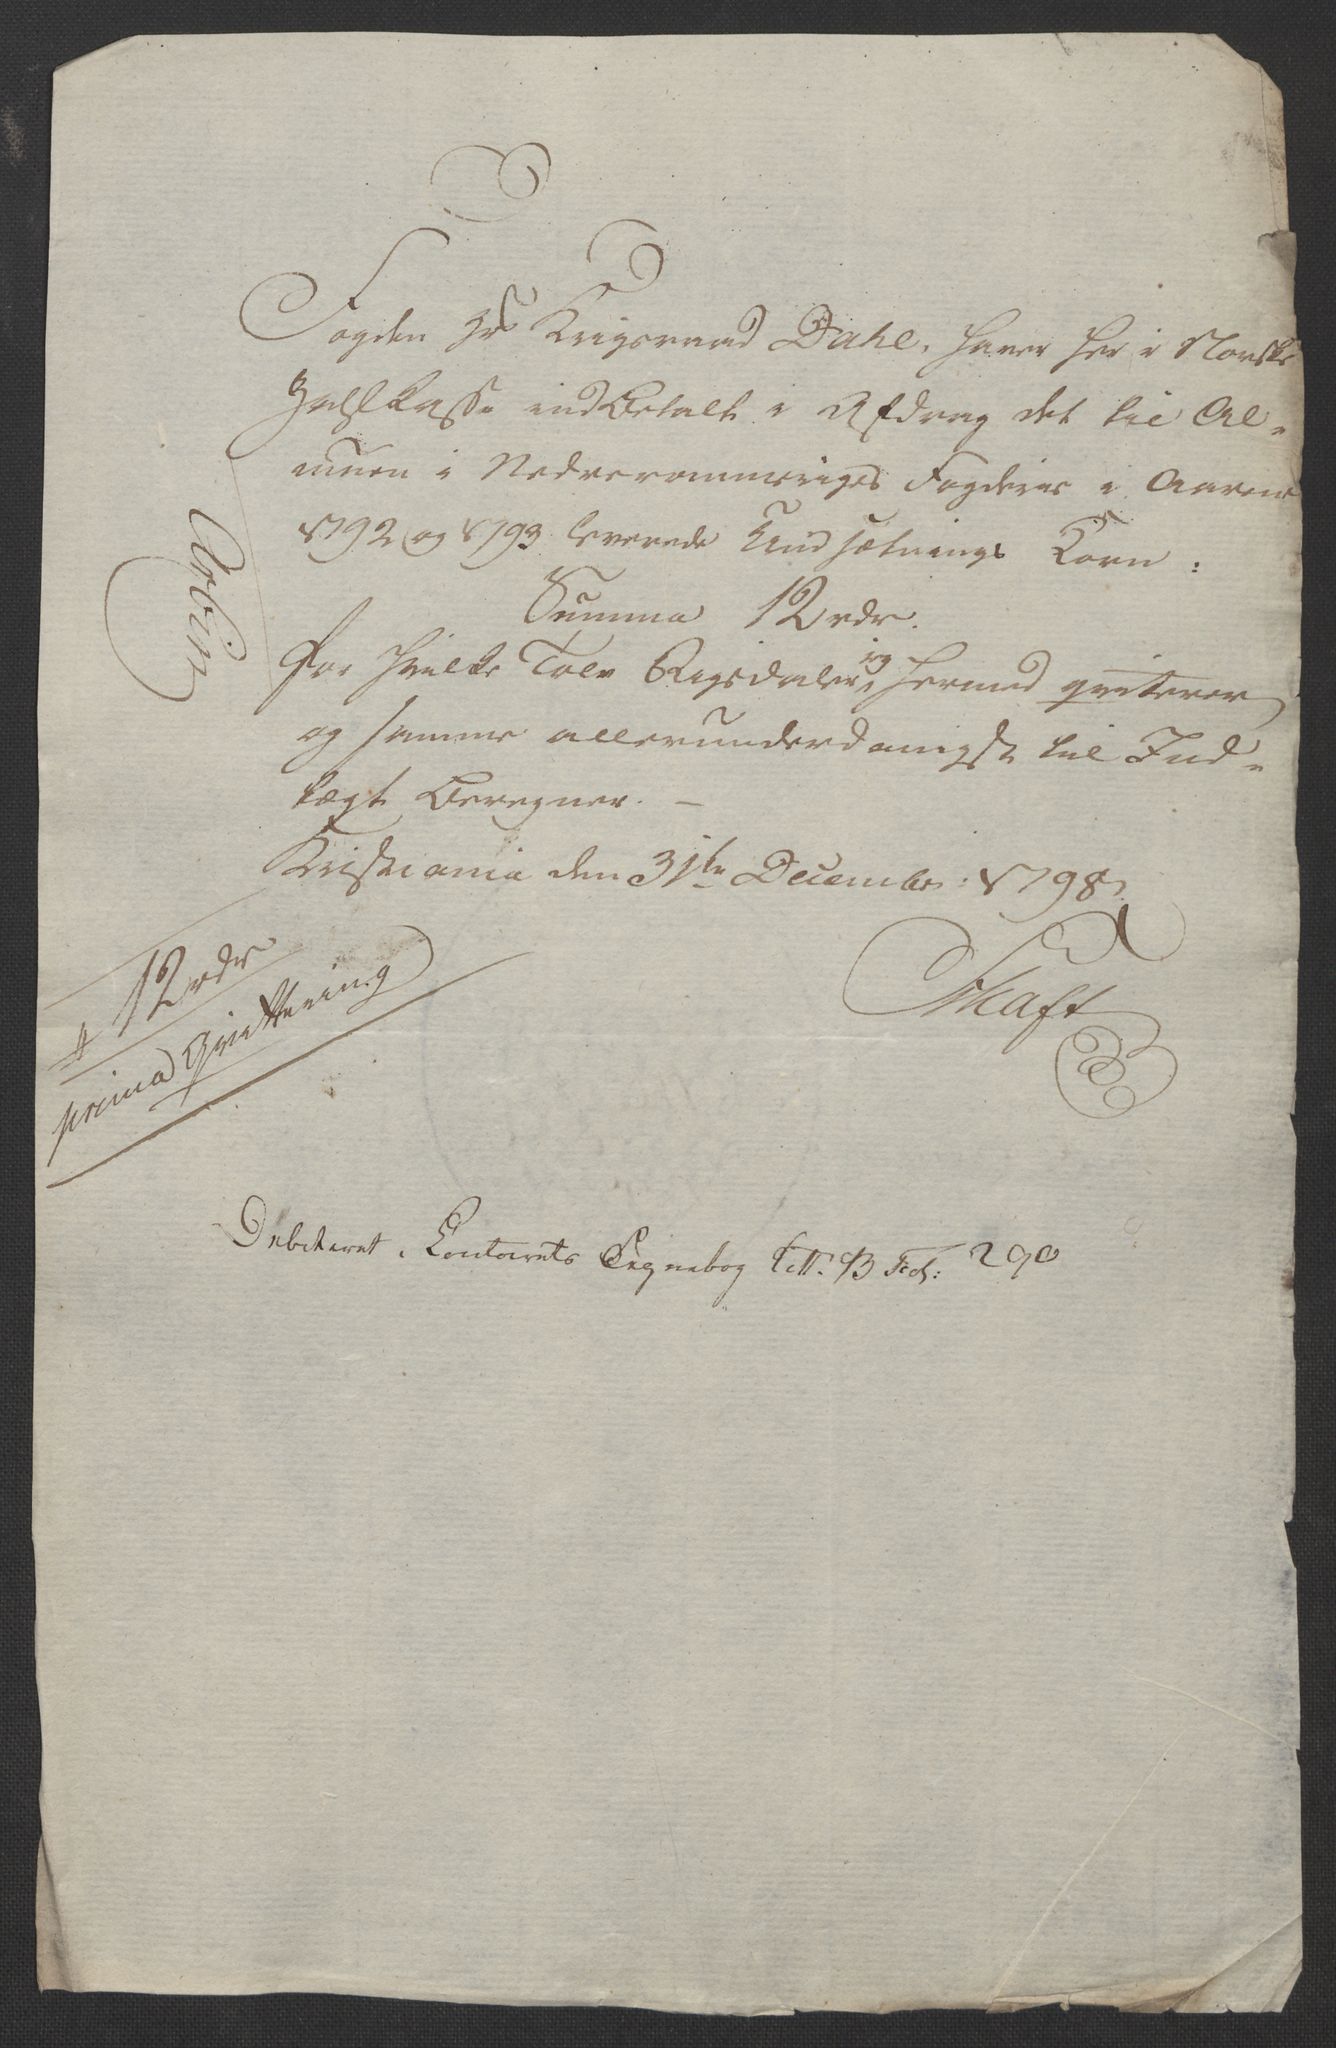 Fogden Hr Krigsraad Dahl, haver her i Norske
Zahlkasse indbetalt i Afdrag det til Al-
muen i Nedreromeriges Fogderie i Aarene
1792 og 1793 leverede Undsætnings Korn:
Summa 12 rdr.
For hvilke Tolv Rigsdaler jeg hermed qviterer
og samme allerunderdanigst til Ind-
tægt Beregner. –
Kristiania den 31te December: 1798.
Skaft
12 rdr
prima Qvittering
Debiteret i Contoirets Regnebog Litr. B Fol: 290